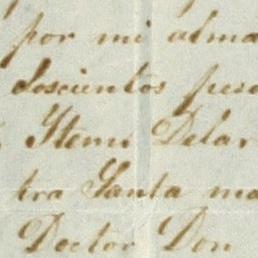 por mi alma
doscientos pes
Item Delar
tra Santa ma
Doctor Don